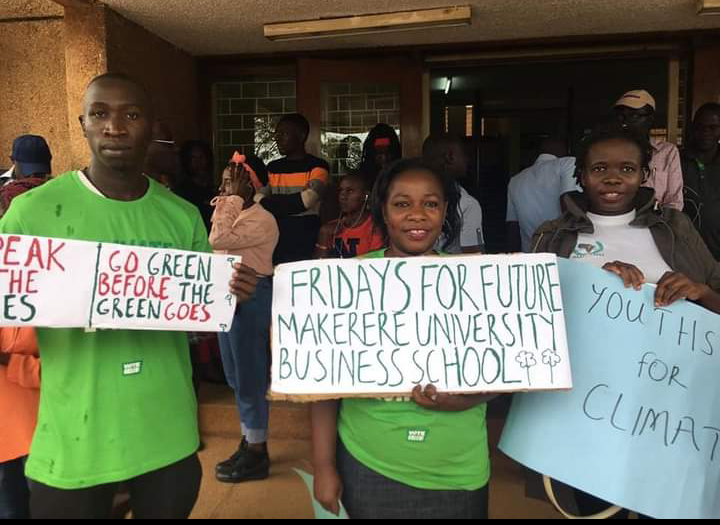 PEAK
THE
ES
GO GREEN
BEFORE THE
GREEN GOES
FRIDAYS FOR FUTURE
MAKERERE UNIVERSITY
BUSINESS SCHOOL
YOUTHS
FOR
CLIMAT